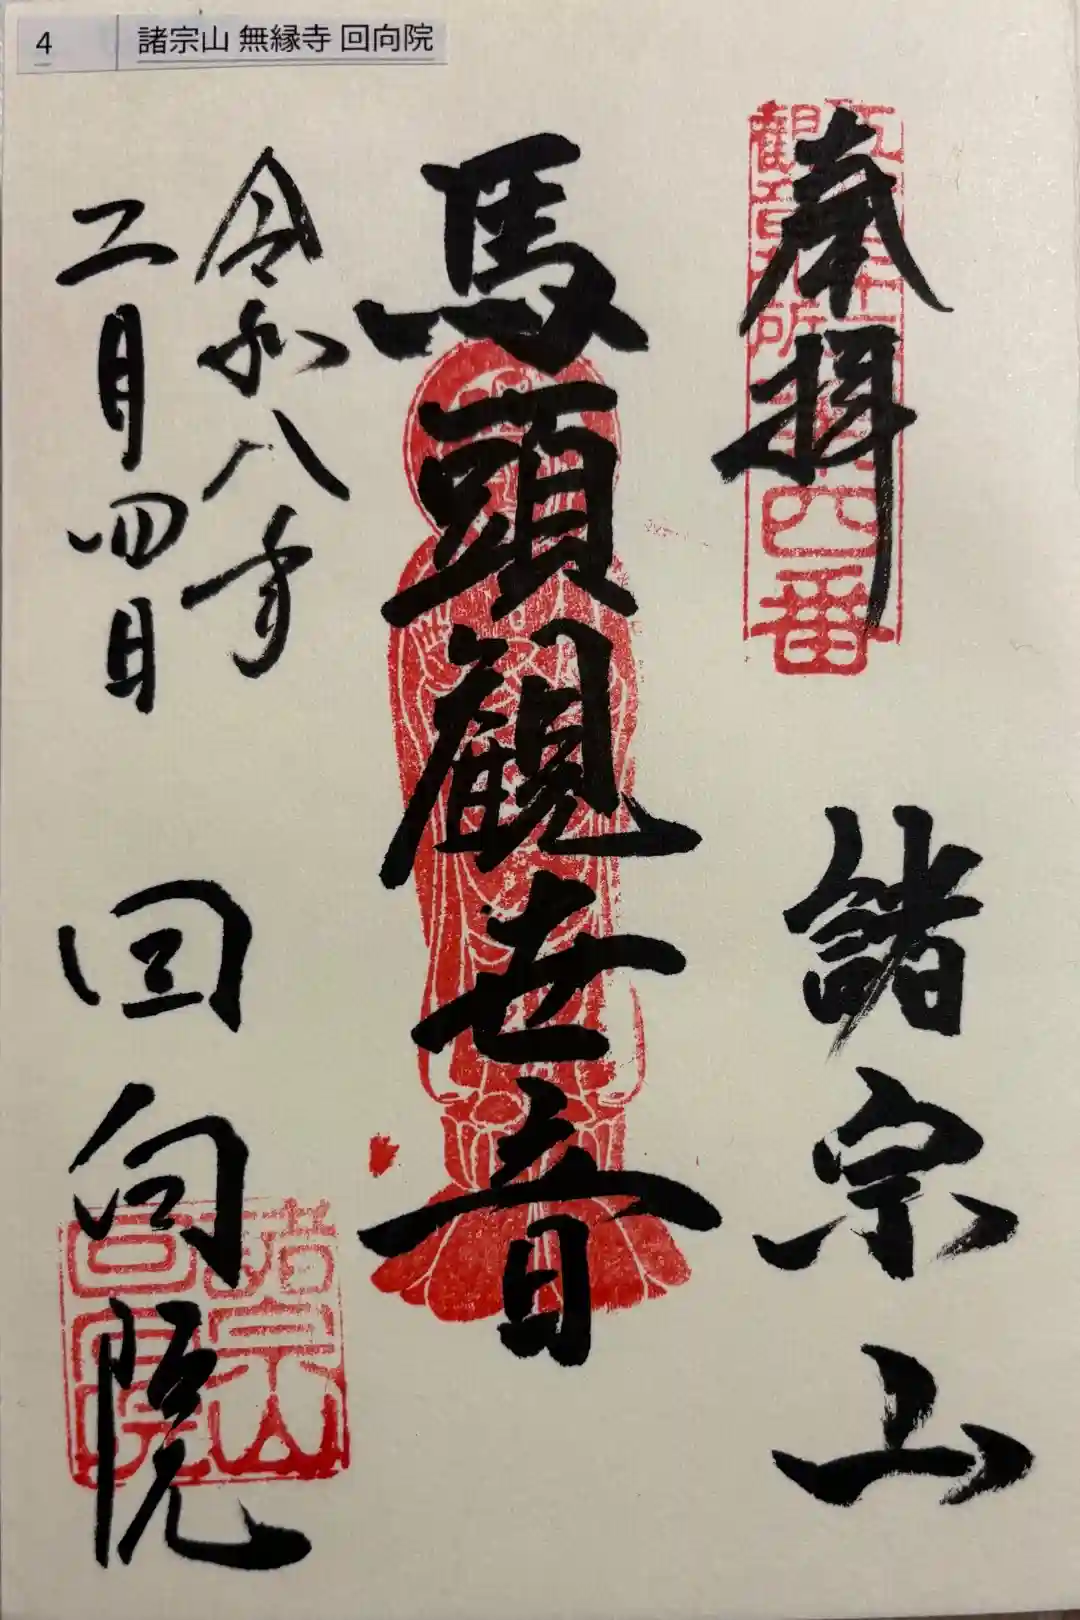 4 諸宗山 無縁寺 回向院
奉拝
諸宗山
馬頭觀世音
令和八年
二月四日
回向院
江戸三十三
観音札所第四番
諸宗山
回向院